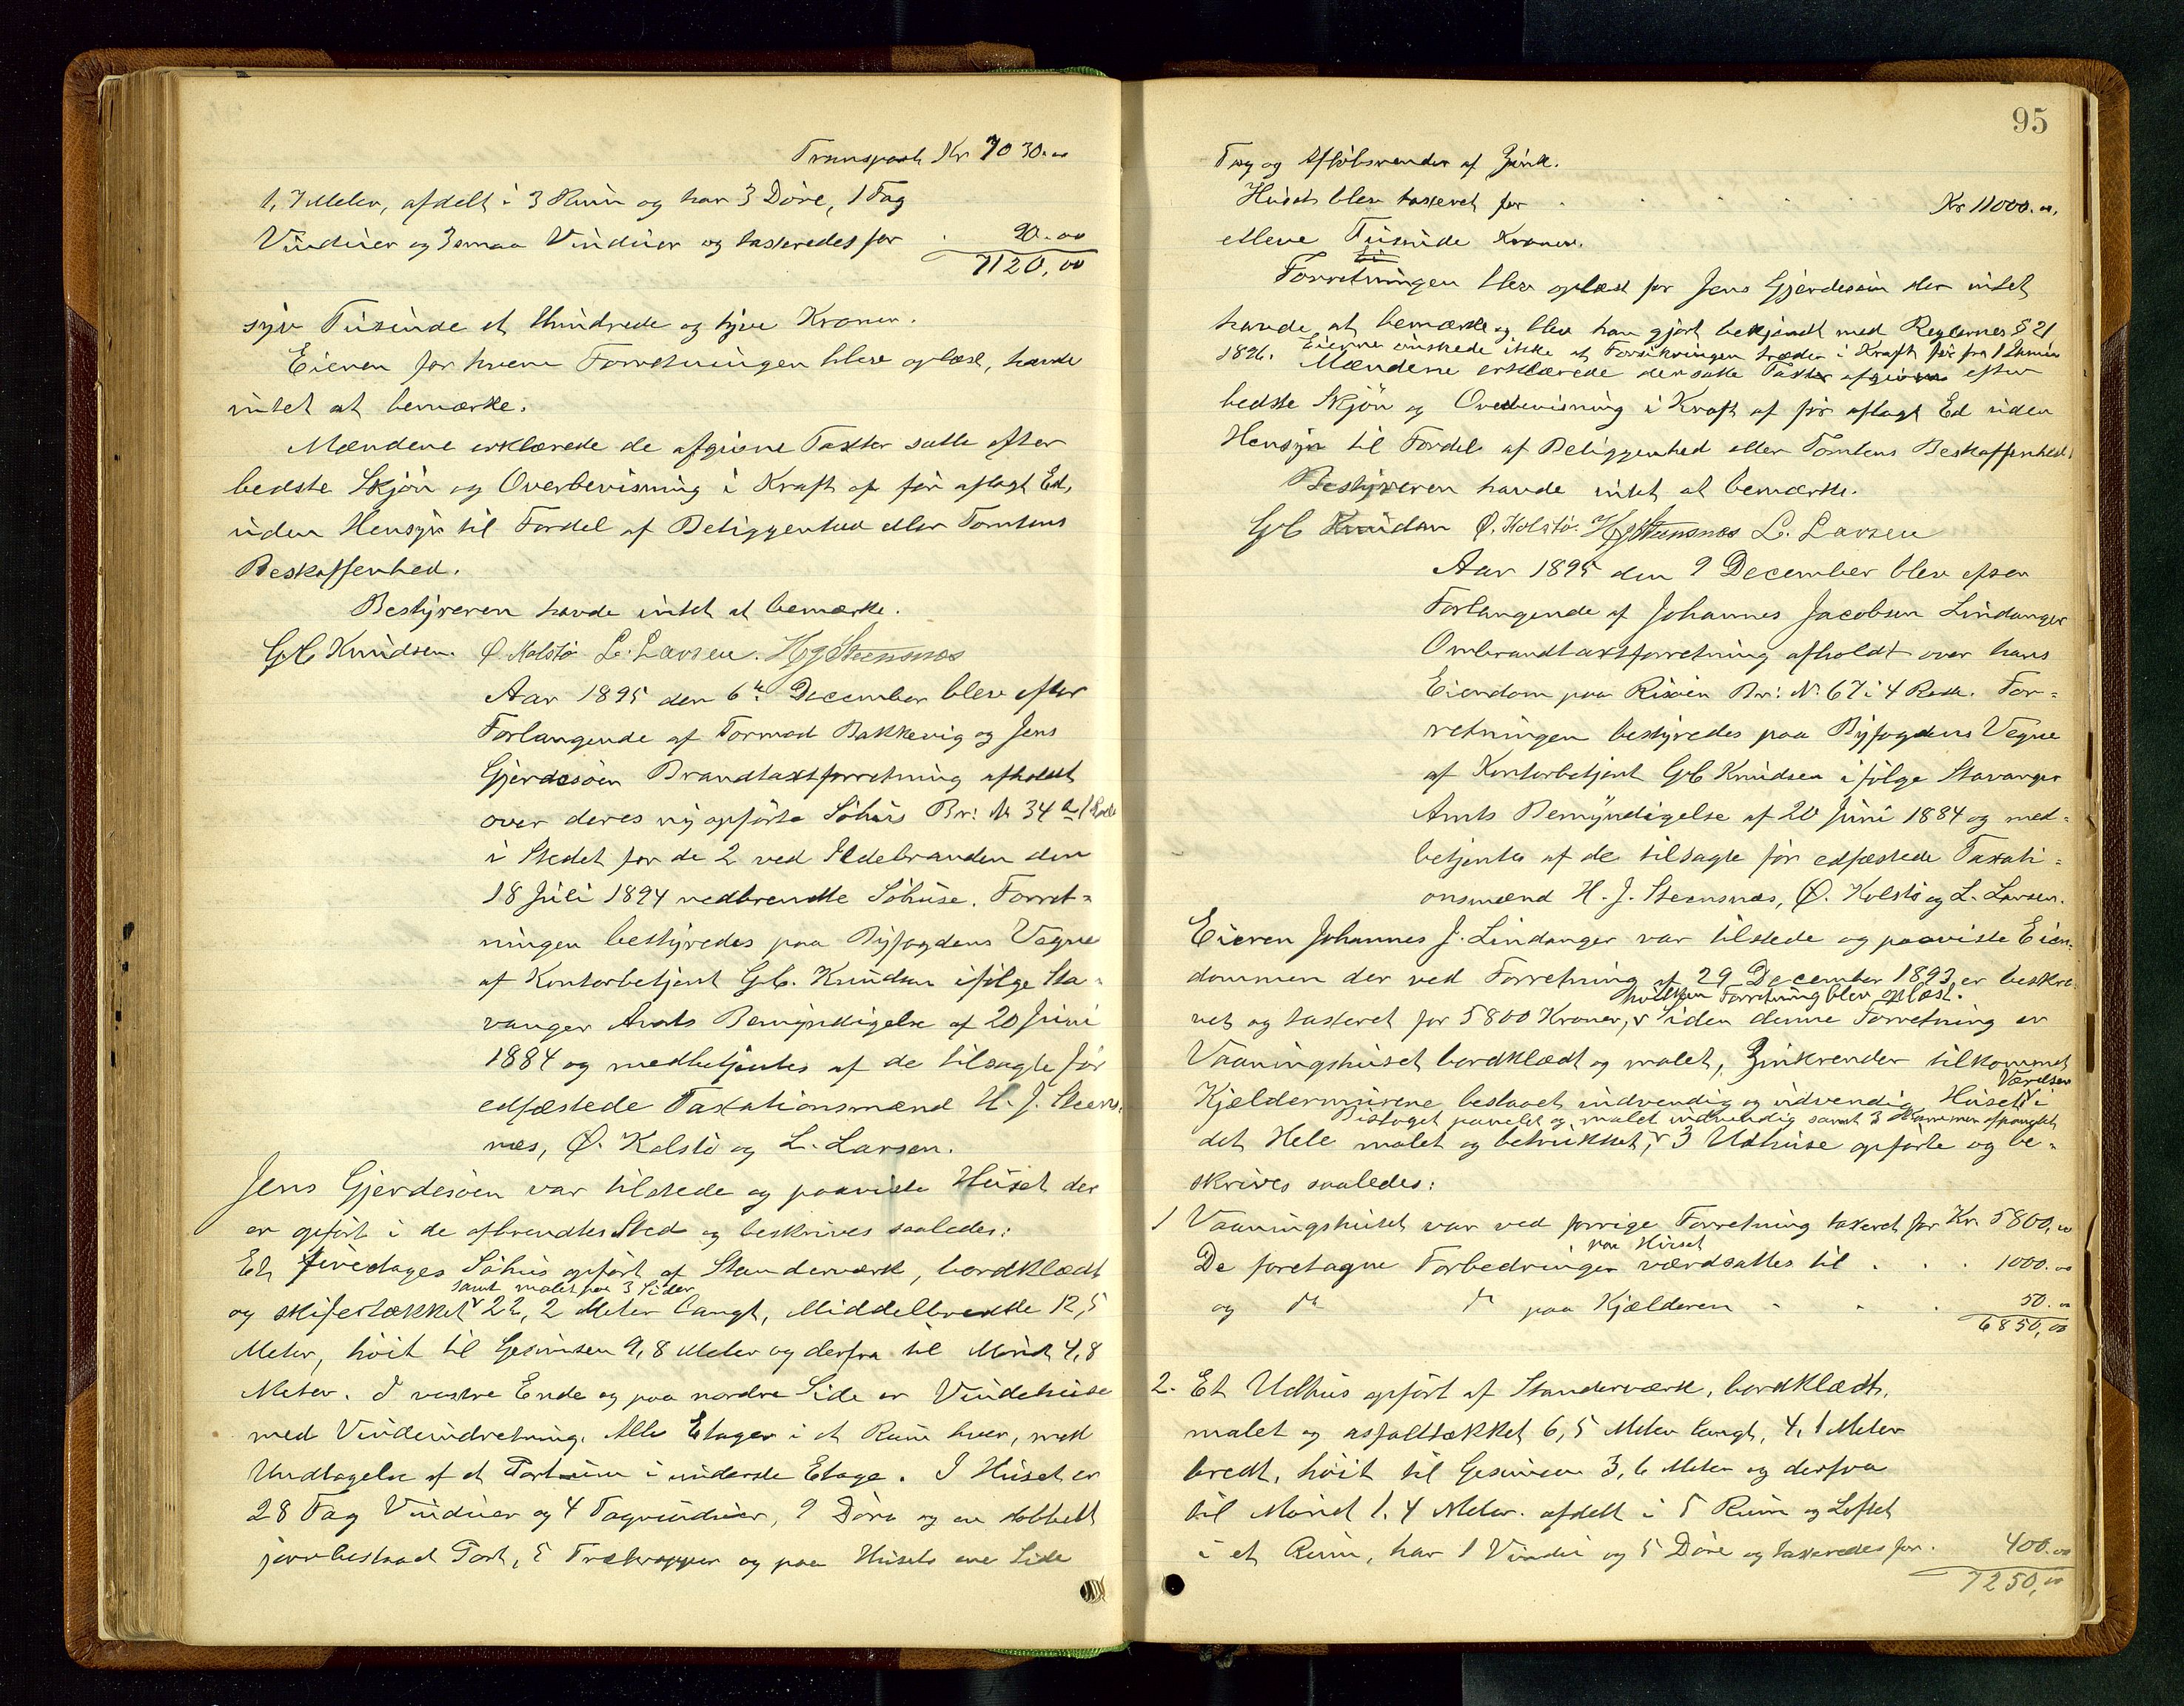 Transport Kr 7030.00
1,7 Meter, afdelt i 3 Rum og har 3 Döre, 1 Fag
Vinduer og 3 smaa Vinduer og taxeredes for . 90.00
7120,00
syv Tusinde et Hundrede og tyve Kroner.
Eieren for hvem Forretningen blev oplæst, havde
intet at bemærke.
Mændene erklærede de afgivne Taxter satte efter
bedste Skjön og Overbevisning i Kraft af för aflagt Ed,
uden Hensyn til Fordel af Beliggenhed eller Tomtens
Beskaffenhed.
Bestyreren havde intet at bemærke.
Knudsen. Ø. Kolstö L. Larsen. H J Steensnæs
Aar 1895 den 6te December blev efter
Forlangende af Tormod Bakkevig og Jens
Gjerdesöen Brandtaxtforretning afholdt
over deres ny opförte Söhus Br: № 34 a 1 Rode
i Stedet for de 2 ved Ildebranden den
18 Juli 1894 nedbrendte Söhuse. Forret-
ningen bestyredes paa Byfogdens Vegne
af Kontorbetjent Knudsen ifölge Sta-
vanger Amts Bemyndigelse af 20 Juni
1884 og medbetjentes af de tilsagte för
edfæstede Taxationsmænd H. J. Steens-
næs, Ø. Kolstö og L. Larsen.
Jens Gjerdesöen var tilstede og paaviste Huset der
er opfört i de afbrendtes Sted og beskrives saaledes:
Et firetages Söhus opfört af Standerværk, bordklædt
samt malet paa 3 Sider
og skifertækket 22,2 Meter langt, Middelbredde 12,5
Meter, höit til Gesimsen 9,8 Meter og derfra til Mönet 4,8
Meter. I vestre Ende og paa nordre Side er Vindehuse
med Vindeindretning. Alle Etager i et Rum hver, med
Undtagelse af et Portrum i underste Etage. I Huset er
28 Fag Vinduer og 4 Tagvinduer, 9 Döre og en dobbelt
jernbeslaaet Port, 5 Trætrapper og paa Husets ene Side
95
Tag og Aflöbsrender af Zink.
Huset blev taxeret for . . . . . . Kr 11000.00,
elleve Tusinde Kroner.
Forretningen blev oplæst for Jens Gjerdesöen der intet
havde at bemærke og blev han gjort bekjendt med Reglernes § 21
1896. Eierne önskede ikke at Forsikringen træder i Kraft för fra 1 Januar
Mændene erklærede den satte Taxt afgiven efter
bedste Skjön og Overbevisning i Kraft af för aflagt Ed uden
Hensyn til Fordel af Beliggenhed eller Tomtens Beskaffenhed.
Bestyreren havde intet at bemærke.
Knudsen Ø. Kolstö. H J Steensnæs L. Larsen
Aar 1895 den 9 December blev efter
Forlangende af Johannes Jacobsen Lindanger
Ombrandtaxtforretning afholdt over hans
Eiendom paa Risöen Br: № 67 i 4 Rode. For-
retningen bestyredes paa Byfogdens Vegne
af Kontorbetjent Knudsen ifölge Stavanger
Amts Bemyndigelse af 20 Juni 1884 og med-
betjentes af de tilsagte för edfæstede Taxati-
onsmænd H. J. Steensnæs, Ø. Kolstö og L. Larsen.
Eieren Johannes J. Lindanger var tilstede og paaviste Eien-
dommen der ved Forretning af 29 December 1893 er beskre-
hvilken Forretning blev oplæst.
vet og taxeret for 5800 Kroner, Siden denne Forretning er
Vaaningshuset bordklædt og malet, Zinkrender tilkommet
Værelser
Kjældermurene beslaaet indvendig og udvendig Husets i
Bislaget panelet og malet indvendig samt 3 Kammer
det Hele malet og betrukket, 3 Udhuse opförte og be-
skrives saaledes:
1 Vaaningshuset var ved forrige Forretning taxeret for Kr. 5800,00
paa Huset
De foretagne Forbedringer værdsattes til . . . 1000.00
og do do paa Kjælderen . . . 50.00
6850,00
2. Et Udhus opfört af Standerværk, bordklædt,
malet og asfalttækket 6,5 Meter langt, 4,1 Meter
bredt, höit til Gesimsen 3,6 Meter og derfra
til Mönet 1,4 Meter. afdelt i 5 Rum og Loftet
i et Rum, har 1 Vindu og 5 Döre og taxeredes for. 400.00
7250,00